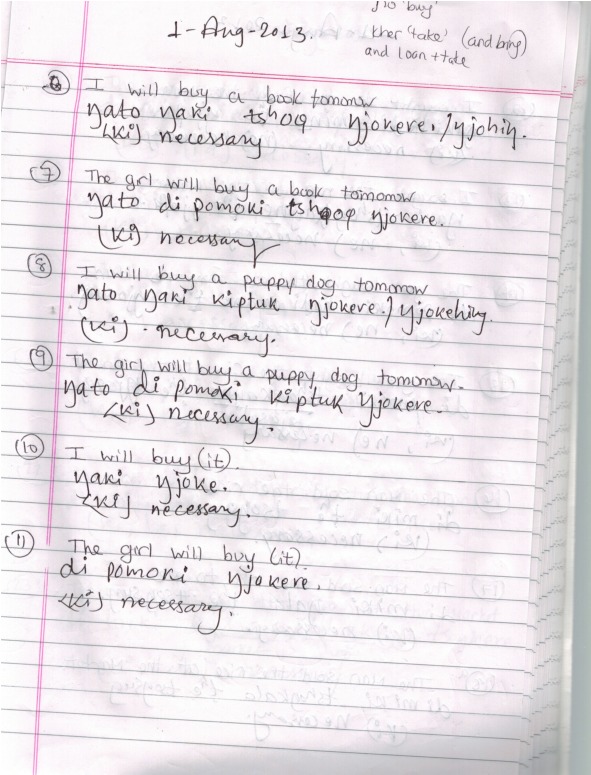 jio 'buy'
1-Aug-2013. kher 'take' (and bring)
and loan + take
6 I will buy a book tomorrow
ŋato ŋaki tshoq ŋjokere./ŋjohiŋ.
<ki> necessary
(7) The girl will buy a book tomorrow
ŋato di pomoki tshoq ŋjokere.
<ki> necessary
(8) I will buy a puppy dog tomorrow
ŋato ŋaki kiptuk ŋjokere./ŋjokehiŋ.
<ki> necessary.
(9) The girl will buy a puppy dog tomorrow.
ŋato di pomoki kiptuk ŋjokere.
<ki> necessary.
(10) I will buy (it).
ŋaki ŋjoke.
<ki> necessary.
(11) The girl will buy (it).
di pomoki ŋjokere.
<ki> necessary.